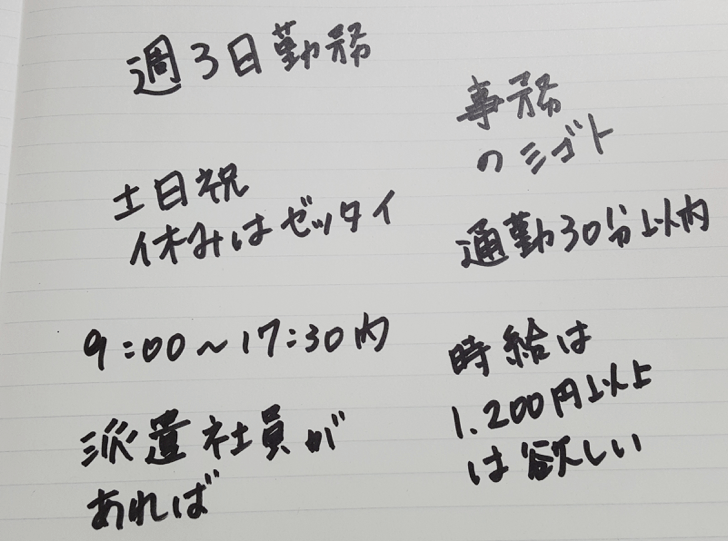 週3日勤務
土日祝
休みはゼッタイ
9:00〜17:30内
派遣社員が
あれば
事務
のシゴト
通勤30分以内
時給は
1.200円以上
は欲しい